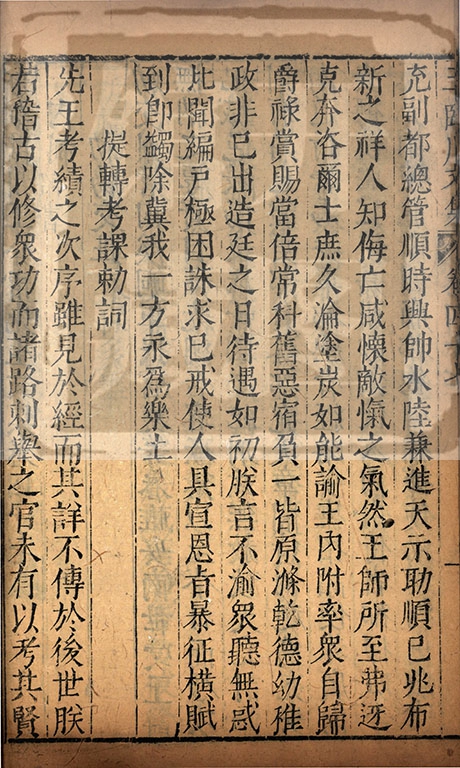 充副都總管順時興帥水陸兼進天示助順已兆布
新之祥人知侮亡咸懷敵愾之氣然王師所至弗迓
克奔咨爾士庶久淪塗炭如能諭王內附率衆自歸
爵祿賞賜當倍常科舊惡宿負一皆原滌乾德幼稚
政非已出造廷之日待遇如初朕言不渝衆聽無惑
比聞編戶極困誅求已戒使人具宣恩旨暴征橫賦
到卽蠲除冀我一方永爲樂土
提轉考課勅詞
先王考績之次序雖見於經而其詳不傳於後世朕
若稽古以修衆功而諸路刺舉之官未有以考其賢